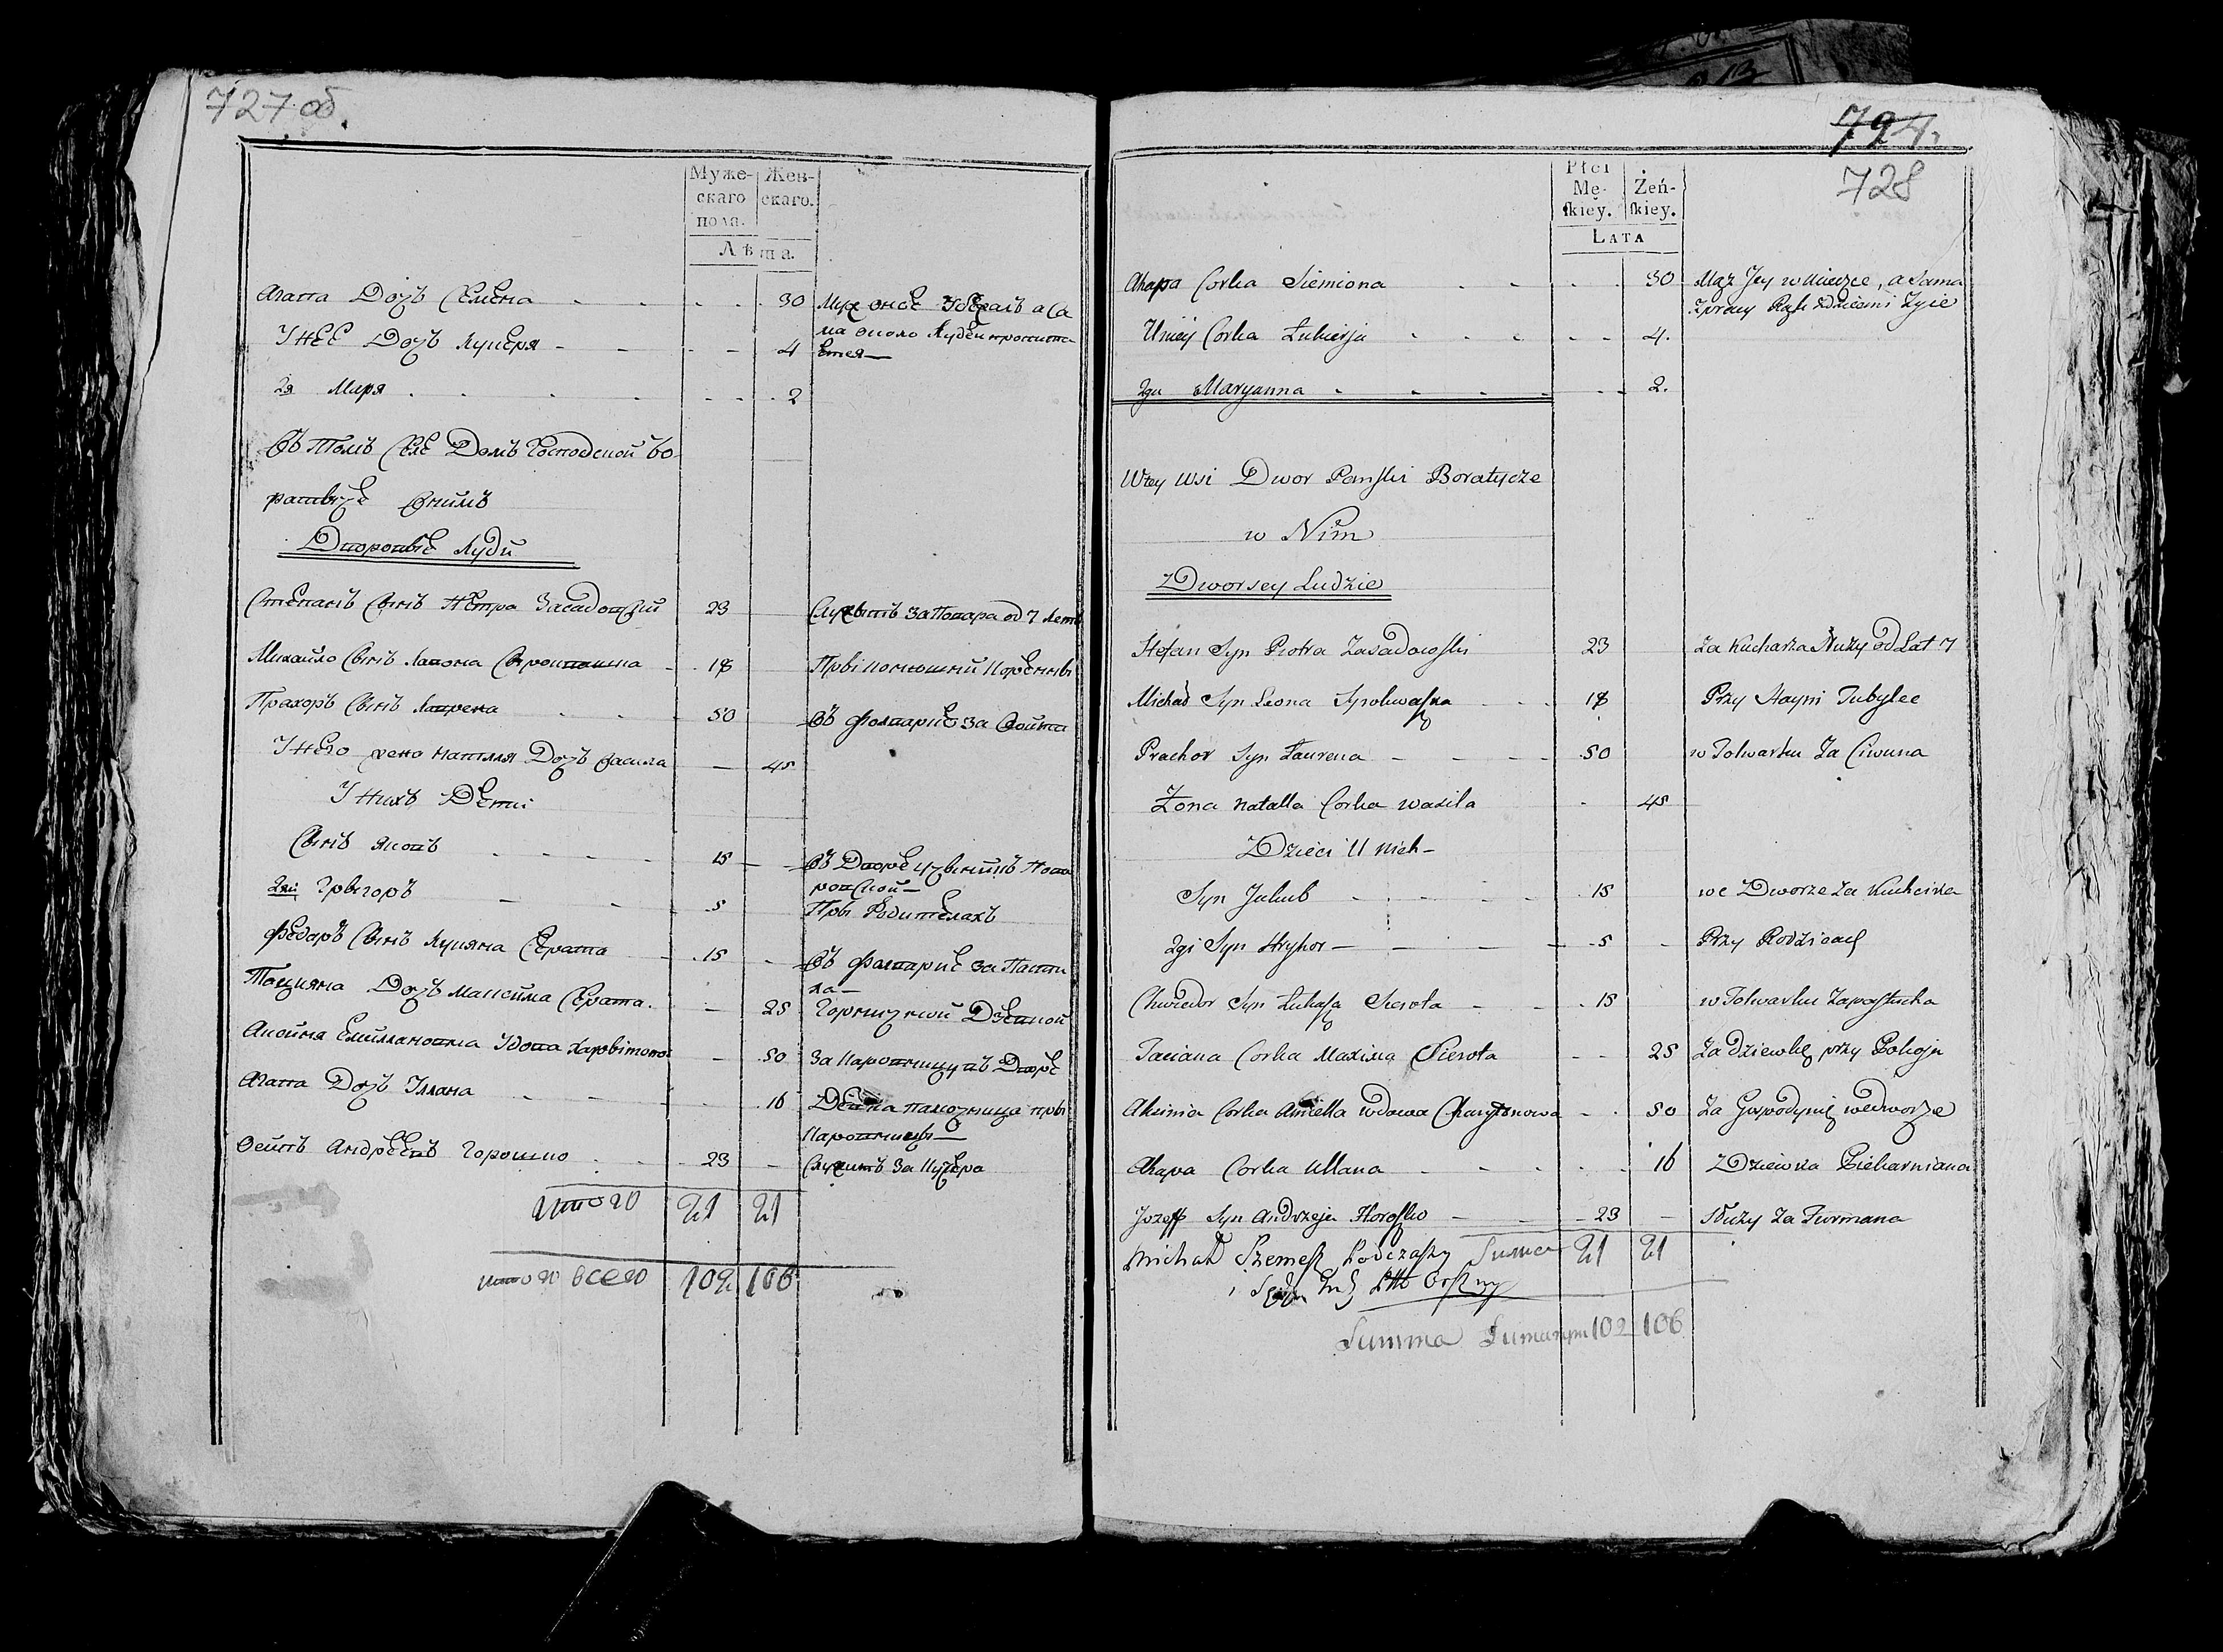 727 об.
Муже-
скаго
пола.
Жен-
скаго.
Лѣта.
Агапа Дочъ Семена 30 Муж оное Убежалъ а Са
ма около Людей кропита
ется
У нее Дочъ Лукеря 4
2я Маря 2
Въ Томъ Селе Домъ Господской Бо
ратыче Внимъ
Дворовые Люди
Степанъ Сынъ Петра Засадовский 23 Служытъ За Повара од 7 летъ
Михайло Сынъ Лавона 18
Прахоръ Сынъ Лаврена 50 Въ Фолварке За Войта
У Него жена Наталля Дочъ Васила 45
У Нихъ Дети
Сынъ Яковъ 15 Въ Дворе
2й Грыгоръ 5 Пры Родителахъ
Федоръ Сынъ Лукяна Серата 15 Въ Фалварке За Пасту
ха
Тацияна Дочъ Максима Серата 25 Горничной Девкой
Аксиня Емиллановна Удова Харытонова 50 За Каровницу въ Дворе
Агапа Дочъ Уллана 16 Девка памочница пры
Каровницы
Осипъ Андреевъ Горошко 23 Служитъ За Кучера
Итого 21 21
итого всего 102 106
724.
728
Płci
Mę-
skiey.
Żeń-
skiey.
LATA
Ahapa Corka Siemiona 30 Mąż Jey w ucieczce, a Sama
Zpracy Rąk Zdziecmi Zyie
Uniey Corka Łukierja 4.
2ga Maryanna 2.
Wtey Wsi Dwor Panski Boratycze
w Nim
Dworscy Ludzie
Stefan Syn Piotra Zasadowski 23 Za Kucharza Służy od Lat 7
Michał Syn Leona 18 Przy Stayni
Prachor Syn Łaurena 50 w Folwarku Za Ciwuna
Żona Natalla Corka Wasila 45
Dzieci U nich
Syn Jakub 15 we Dworze Za Kuchcika
2gi Syn Hryhor 5 Przy Rodzicach
Chwiedor Syn Łukasza Sierota 15 w Folwarku Za pastucha
Taciana Corka Maxima Sierota 25 Za dziewkę przy Pokoju
Aksinia Corka Amiella Wdowa Charytonowa 50 Za Gospodynię we dworze
Ahapa Corka Ullana 16 Dziewka Piekarniana
Jozeff Syn Andrzeja Horoszko 23 Służy Za Furmana
Michał Szemesz Podczaszy Summa 21 21
Summa 102 106